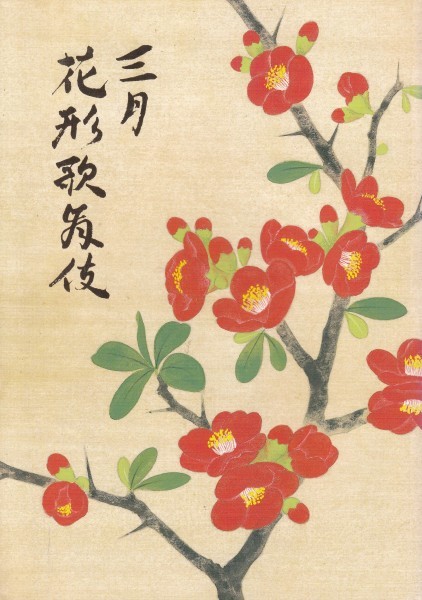 三月
花形歌舞伎